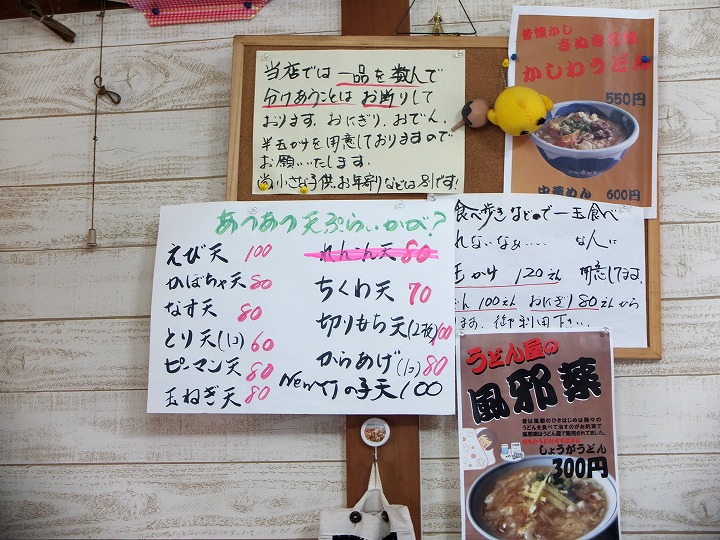 当店では一品を数人で
分けあうことはお断りして
おります。おにぎり、おでん、
半玉かけを用意しておりますので
お願いいたします。
尚、小さな子供、お年寄りなどは別です!
昔懐かし
さぬき名物
かしわうどん
550円
中華めん 600円
あつあつ天ぷらいかが?
えび天 100
かぼちゃ天 80
なす天 80
とり天(1コ) 60
ピーマン天 80
玉ねぎ天 80
れんこん天 80
ちくわ天 70
切りもち天(2枚)100
からあげ(1コ)80
New 竹の子天 100
食べ歩きなどので一玉食べ
れない なぁ‥‥ な人に
玉かけ 120えん 用意してます。
でん 100えん おにぎり80えんから
ます。御利用下さい。
うどん屋の
風邪薬
昔は風邪のひきはじめは熱々の
うどんを食べて治すのがお約束で
風邪薬はうどん屋で販売されてました。
しょうがうどん
300円